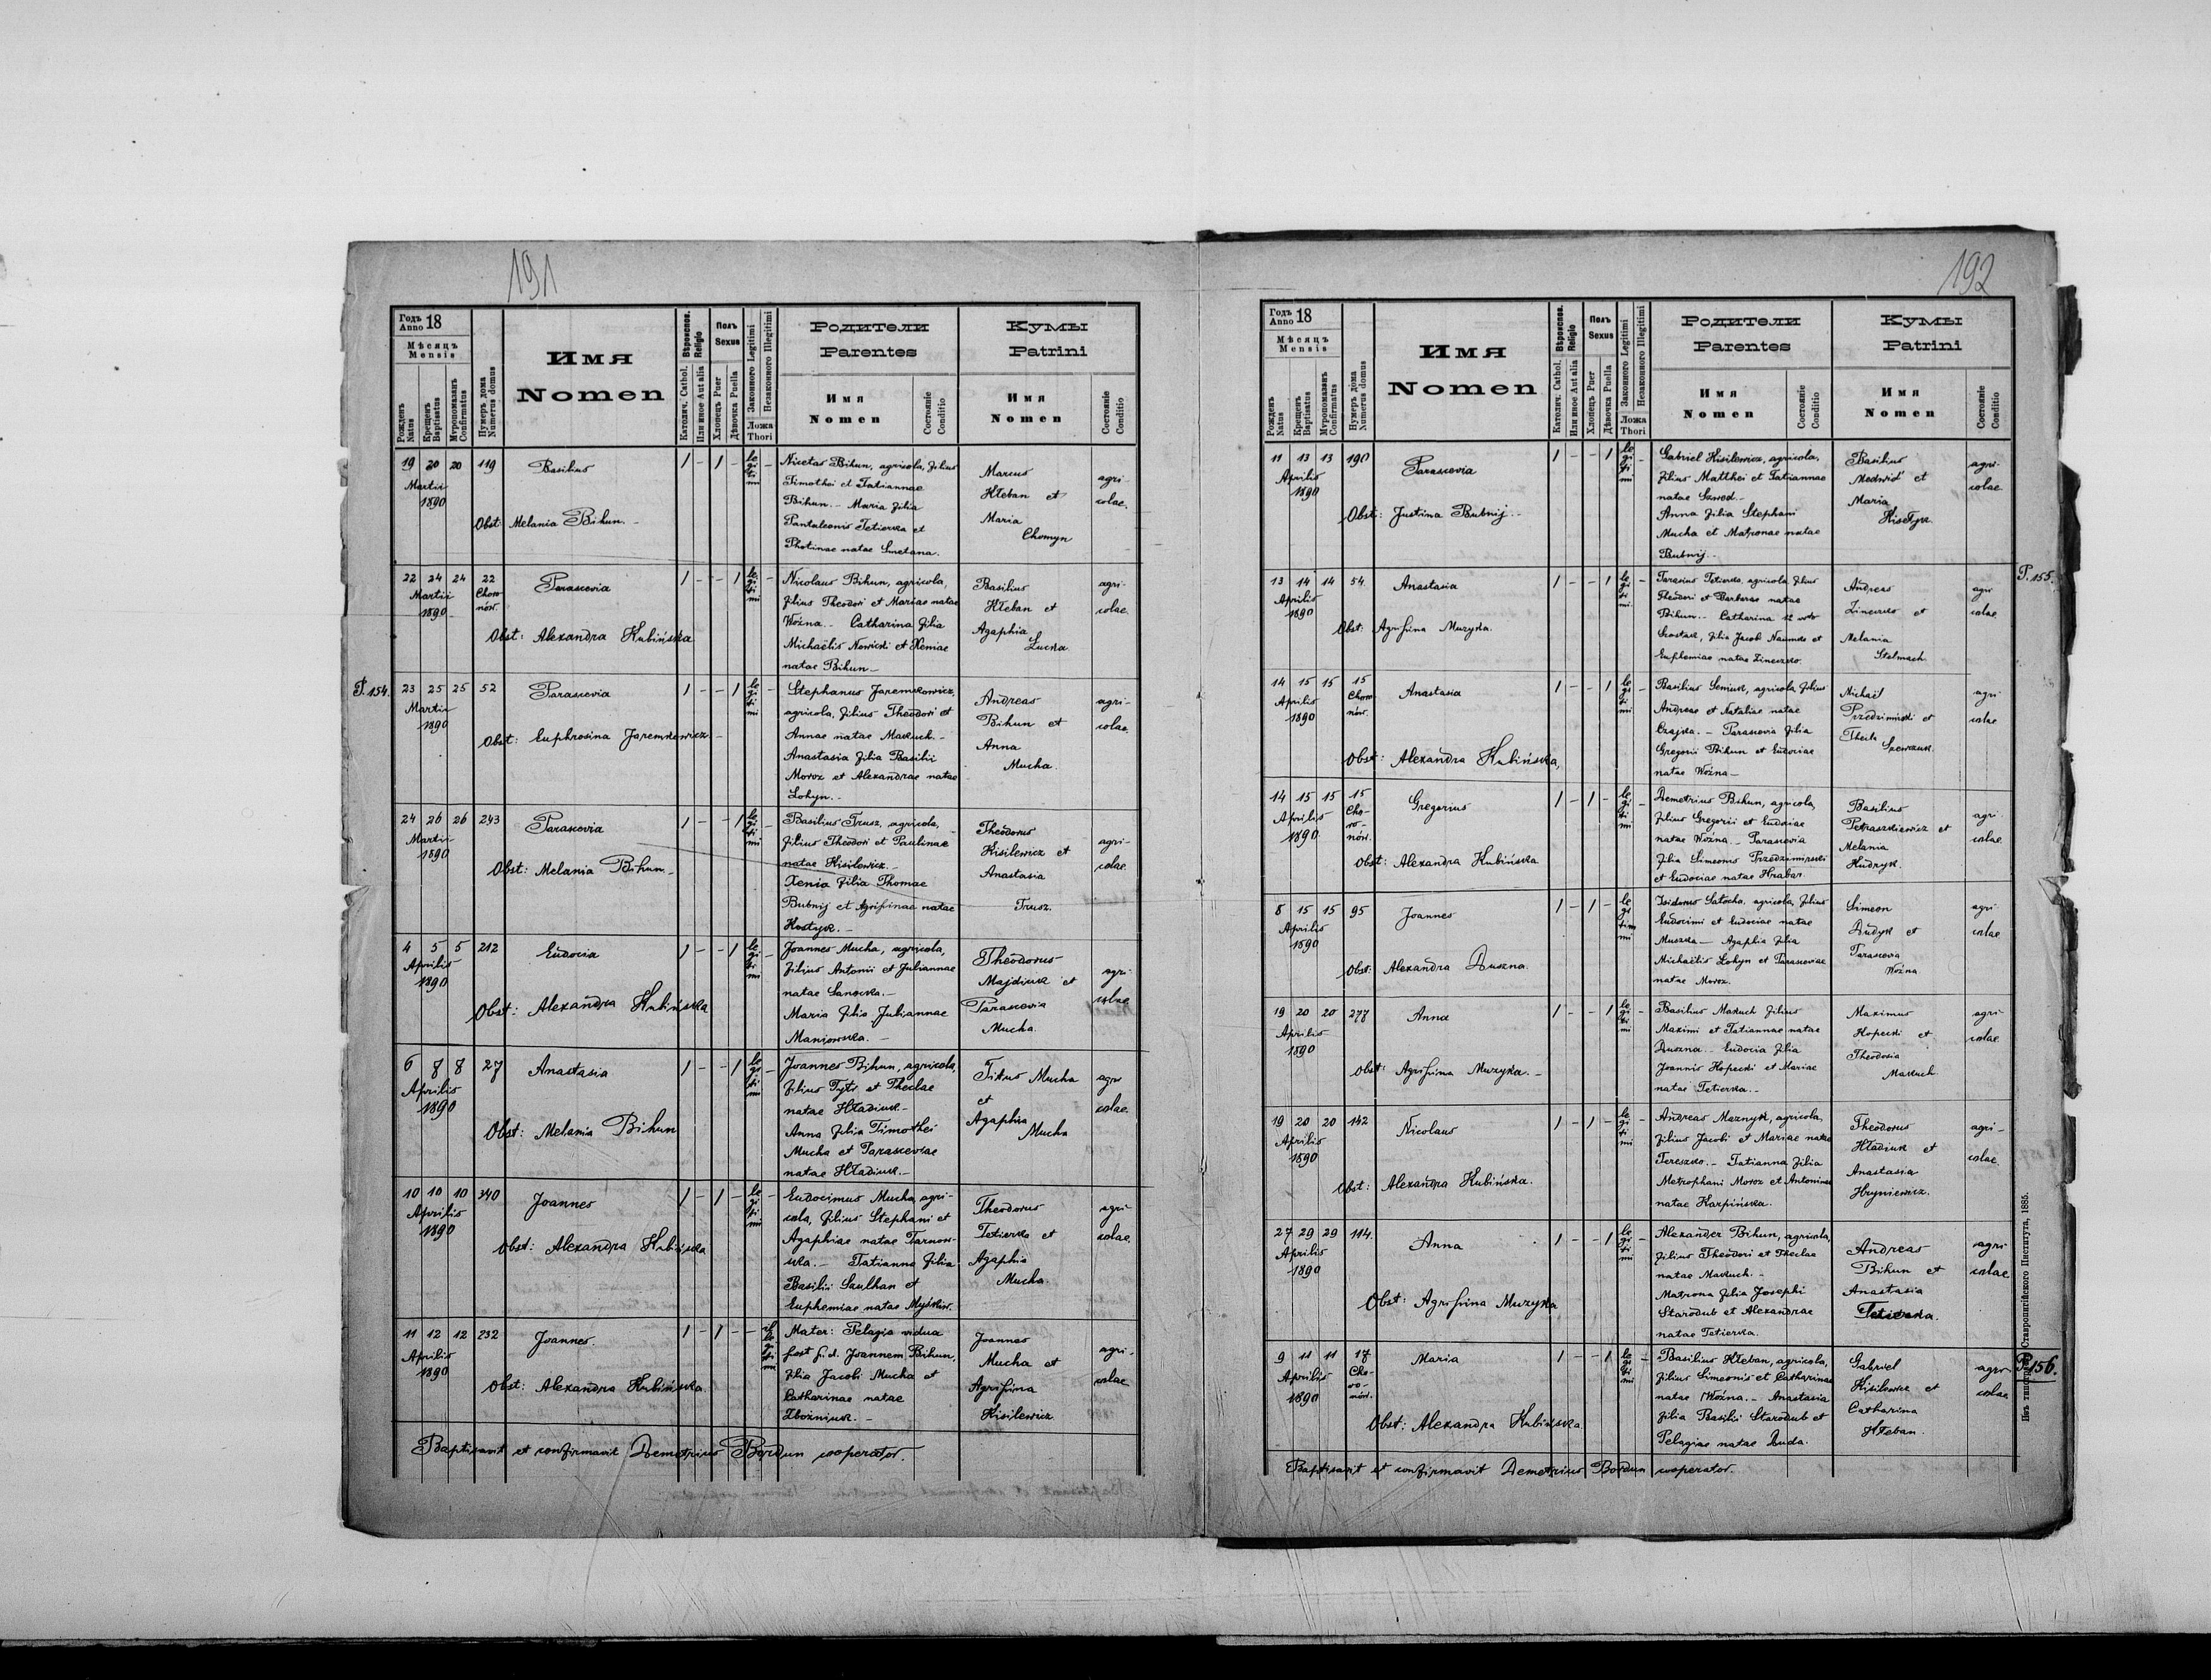 191
Годъ Anno 18
Мѣсяцъ Mensis
Рожденъ Natus
Крещенъ Baptisatus
Мѵропомазанъ Confirmatus
Нумеръ дома Numerus domus
Имя Nomen
Вѣроиспов. Religio
Католич. Cathol.
Или иное Aut alia
Полъ Sexus
Хлопецъ Puer
Дѣвочка Puella
Законного Legitimi
Незаконного Illegitimi
Ложа Thori
Родители Parentes
Имя Nomen
Состояніе Conditio
Кумы Patrini
Имя Nomen
Состояніе Conditio
19 20 20 119
Martii
1890
Basilius
Obst: Melania Bihun.
1 - 1 - legitimi -
Nicetas Bihun, agricola, filius
Timothei et Tatiannae
Bihun. - Maria filia
Pantaleonis Tetierka et
Photinae natae Smetana.
Marcus
Hłeban et
Maria
Chomyn
agri-
colae.
22 24 24 22
Martii
1890
Parascevia
Obst: Alexandra Kubińska
1 - - 1 legitimi -
Nicolaus Bihun, agricola,
filius Theodori et Mariae natae
Woźna. - Catharina filia
Michaëlis Nowicki et Xeniae
natae Bihun -
Basilius
Hłeban et
Agaphia
Łucka
agri-
colae.
P. 154.
23 25 25 52
Martii
1890
Parascevia
Obst: Euphrosina Jaremkowicz
1 - - 1 legitimi
Stephanus Jaremkowicz,
agricola, filius Theodori et
Annae natae Makuch. -
Anastasia filia Basilii
Moroz et Alexandrae natae
Lohyn. -
Andreas
Bihun et
Anna
Mucha.
agri-
colae.
24 26 26 243
Martii
1890
Parascevia
Obst: Melania Bihun -
1 - - 1 legitimi -
Basilius Trusz, agricola,
filius Theodori et Paulinae
natae Kisilewicz. -
Xenia filia Thomae
Bubnij et Agripinae natae
Kostyk. -
Theodorus
Kisilewicz et
Anastasia
Trusz.
agri-
colae.
4 5 5 212
Aprilis
1890
Eudocia
Obst: Alexandra Kubińska
1 - - 1 legitimi -
Joannes Mucha, agricola,
filius Antonii et Juliannae
natae Sanocka. -
Maria filia Juliannae
Maniowska. -
Theodorus
Majdiuk et
Parascevia
Mucha.
agri-
colae
6 8 8 27
Aprilis
1890
Anastasia
Obst: Melania Bihun
1 - - 1 legitimi -
Joannes Bihun, agricola,
filius Tyti et Theclae
natae Hładiuk -
Anna filia Timothei
Mucha et Parasceviae
natae Hładiuk. -
Titus Mucha
et
Agaphia
Mucha
agri
colae.
10 10 10 340
Aprilis
1890
Joannes
Obst: Alexandra Kubińska
1 - 1 - legitimi -
Eudocimus Mucha, agri-
cola, filius Stephani et
Agaphiae natae Tarnow-
ska. - Tatianna filia
Basilii Saulhan et
Euphemiae natae Myśkiw.
Theodorus
Tetierka et
Agaphia
Mucha
agri
colae.
11 12 12 232
Aprilis
1890
Joannes.
Obst: Alexandra Kubińska.
1 - 1 - - illegitimi
Mater: Pelagia vidua
post p. d. Joannem Bihun,
filia Jacobi Mucha et
Catharinae natae
Zbożniuk. -
Joannes
Mucha et
Agrifina
Kisilewicz
agri-
colae
Baptisavit et confirmavit Demetrius Bordun cooperator.
192
Годъ Anno 18
Мѣсяцъ Mensis
Рожденъ Natus
Крещенъ Baptisatus
Мѵропомазанъ Confirmatus
Нумеръ дома Numerus domus
Имя Nomen
Вѣроиспов. Religio
Католич. Cathol.
Или иное Aut alia
Полъ Sexus
Хлопецъ Puer
Дѣвочка Puella
Законного Legitimi
Незаконного Illegitimi
Ложа Thori
Родители Parentes
Имя Nomen
Состояніе Conditio
Кумы Patrini
Имя Nomen
Состояніе Conditio
11 13 13 190
Aprilis
1890
Parascevia
Obst: Justina Bubnij. -
1 - - 1 legitimi -
Gabriel Kisilewicz, agricola,
filius Matthei et Tatiannae
natae Szwed. -
Anna filia Stephani
Mucha et Matronae natae
Bubnij. -
Basilius
Medwid' et
Maria
agri-
colae
P. 155.
13 14 14 54.
Aprilis
1890
Anastasia
Obst: Agrifina Muzyka.
1 - - 1 legitimi -
Tarasius Tetierka, agricola, filius
Theodori et Barbarae natae
Bihun. - Catharina
filia Jacobi Naumko et
Euphemiae natae Zineczko.
Andreas
et
Melania
Stelmach.
agri
colae
14 15 15 15
Aprilis
1890
Anastasia
Obst: Alexandra Kubińska,
1 - - 1 legitimi -
Basilius Seniuk, agricola, filius
Andreae et Nataliae natae
Czajka. - Parascevia filia
Gregorii Bihun et Eudociae
natae Woźna -
Michaël
Przedzimirski et
Thecla
Szewczuk.
agri
colae
14 15 15 15
Aprilis
1890
Choronów.
Gregorius
Obst: Alexandra Kubińska
1 - 1 - legitimi -
Demetrius Bihun, agricola,
filius Gregorii et Eudociae
natae Woźna. - Parascevia
filia Simeonis Przedzimirski
et Eudociae natae Hrabar.
Basilius
Petraszkiewicz et
Melania
Kudryk.
agri-
colae
8 15 15 95
Aprilis
1890
Joannes
Obst: Alexandra Duszna.
1 - 1 -
Isidorus Satocha, agricola, filius
Eudocimi et Eudociae natae
Muszka - Agaphia filia
Michaëlis Lohyn et Parasceviae
natae Moroz.
Simeon
Dudyk et
Parascevia
Woźna
agri
colae
19 20 20 277
Aprilis
1890
Anna
Obst: Agrifina Muzyka. -
1 - - 1 legitimi -
Basilius Makuch filius
Maximi et Tatiannae natae
Duszna. - Eudocia filia
Joannis Kopecki et Mariae
natae Tetierka. -
Maximus
Kopecki et
Theodosia
Makuch
agri
colae.
19 20 20 142
Aprilis
1890
Nicolaus
Obst: Alexandra Kubińska.
1 - 1 - legitimi -
Andreas Maznyk, agricola,
filius Jacobi et Mariae natae
Tereszko. - Tatianna filia
Metrophani Moroz et Antoninae
natae Karpińska.
Theodorus
Hładiuk et
Anastasia
Hryniewicz.
agri-
colae.
27 29 29 114.
Aprilis
1890
Anna
Obst: Agrifina Muzyka
1 - - 1 legitimi -
Alexander Bihun, agricola,
filius Theodori et Theclae
natae Makuch. -
Matrona filia Josephi
Starodub et Alexandrae
natae Tetierka.
Andreas
Bihun et
Anastasia
Tetierka.
agri
colae
P. 156.
9 11 11 17
Aprilis
1890
Choronów.
Maria
Obst: Alexandra Kubińska
1 - - 1 legitimi -
Basilius Hłeban, agricola,
filius Simeonis et Catharinae
natae Woźna. - Anastasia
filia Basilii Starodub et
Pelagiae natae Duda.
Gabriel
et
Catharina
Hłeban.
agri
colae
Baptisavit et confirmavit Demetrius Bordun cooperator.
Изъ типогр. Ставропигійского Института, 1885.